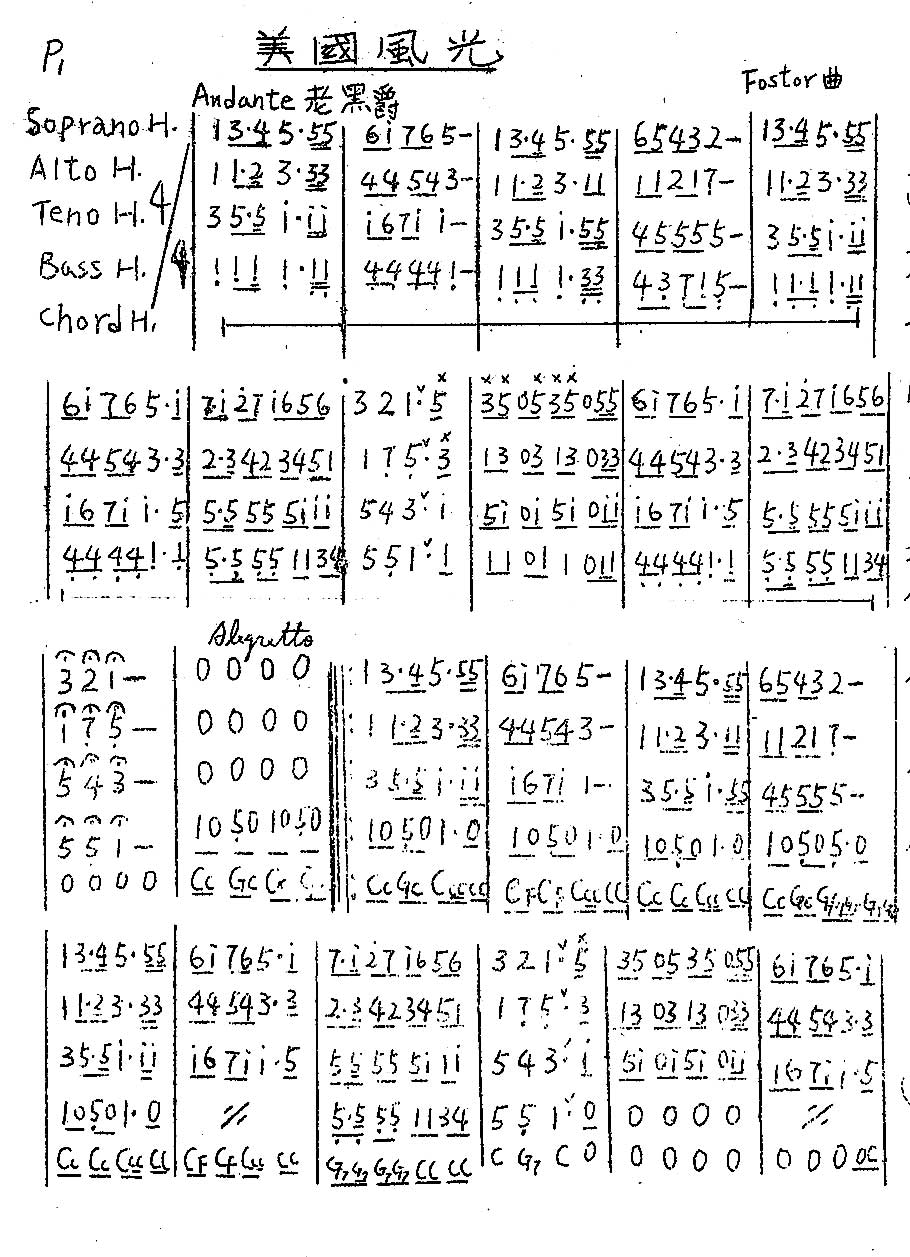 P1 美國風光
Andante 老黑爵 Fostor曲
Soprano H. 1 3·4 5·55 | 6i 76 5- | 1 3·4 5·55 | 65 43 2- | 1 3·4 5·55
Alto H. 1 1·2 3·33 | 44 54 3- | 1 1·2 3·11 | 11 21 7- | 1 1·2 3·33
Teno H. 3 5·5 i·ii | i6 7i i- | 3 5·5 i·55 | 45 55 5- | 3 5·5 i·ii
4
4
Bass H. 1 11 1·11 | 44 44 1- | 1 11 1·33 | 43 71 5- | 1 1·1 1·11
Chord H.
6i 76 5·i | 7·i 27 i6 56 | 3 2 1ˇ5 | 35 05 35 055 | 6i 76 5·i | 7·i 27 i6 56
44 54 3·3 | 2·3 42 34 51 | 1 7 5ˇ3 | 13 03 13 033 | 44 54 3·3 | 2·3 42 34 51
i6 7i i·5 | 5·5 55 5i ii | 5 4 3ˇi | 5i 0i 5i 0ii | i6 7i i·5 | 5·5 55 5i ii
44 44 1·1 | 5·5 55 11 34 | 5 5 1ˇ1 | 11 01 1 011 | 44 44 1·1 | 5·5 55 11 34
Alegretto
3 2 1- | 0 0 0 0 | 1 3·4 5·55 | 6i 76 5- | 1 3·4 5·55 | 65 43 2-
1 7 5- | 0 0 0 0 | 1 1·2 3·33 | 44 54 3- | 1 1·2 3·11 | 11 21 7-
5 4 3- | 0 0 0 0 | 3 5·5 i·ii | i6 7i 1- | 3 5·5 i·55 | 45 55 5-
5 5 1- | 10 50 10 50 | 10 50 1·0 | 10 50 1·0 | 10 50 1·0 | 10 50 5·0
0 0 0 0 | CC GC | CC GC CCC CC | CF CF CCC CC | CC CC CCC CC | CC
13·4 5·55 | 6i 76 5·i | 7·i 27 i6 56 | 3 2 1ˇ5 | 35 05 35 055 | 6i 76 5·i
11·2 3·33 | 44 54 3·3 | 2·3 42 34 51 | 1 7 5ˇ3 | 13 03 13 033 | 44 54 3·3
35·5 i·ii | i6 7i i·5 | 55 55 5i 1i | 5 4 3ˇi | 5i 0i 5i 0ii | 16 7i i·5
10 50 1·0 | 〃 | 5·5 55 11 34 | 5 5 1ˇ0 | 0 0 0 0 | 〃
CC CC CCC CC | CF CF CCC CC | G7G7 G7G7 CC CC | C G7 C 0 | 0 0 0 0 | 0 0 0 0C